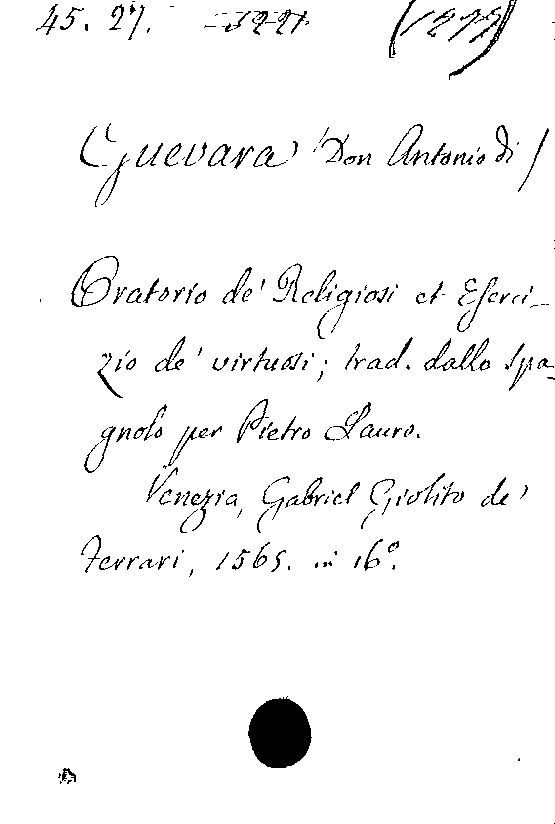 45. 27. 5221 (1272)
Guevara (Don Antonio di)
Oratorio de' Religiosi et Eserci-
zio de' virtuosi; trad. dallo spa-
gnolo per Pietro Lauro.
Venezia, Gabriel Giolito de'
Ferrari, 1565. in 16º.